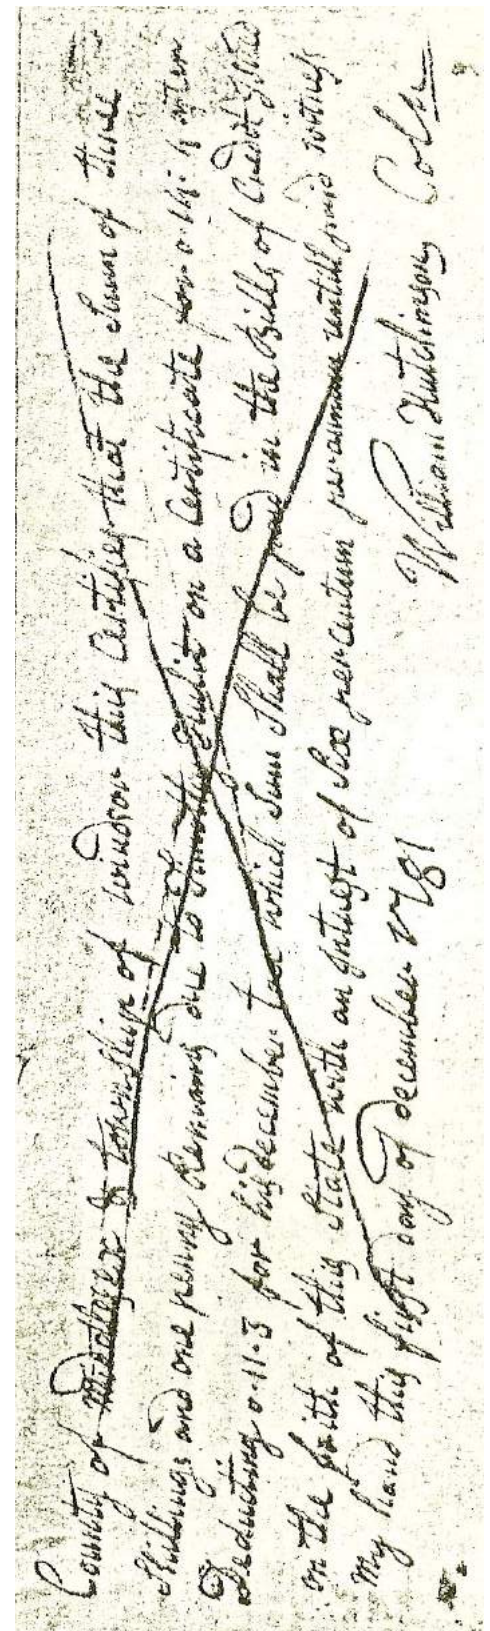 County of Middlesex & township of windsor this Certifies that the Sum of three
Shillings and one penny Remaing due to Timothy on a Certificate for 0.14.4 after
Deducting 0.11.3 for his december tax which Sum Shall be paid in the Bills of Credit
on the faith of this State with an Intrest of Six percentum per annum untill paid witness
my hand this first day of december 1781 William Hutchinson, Colr